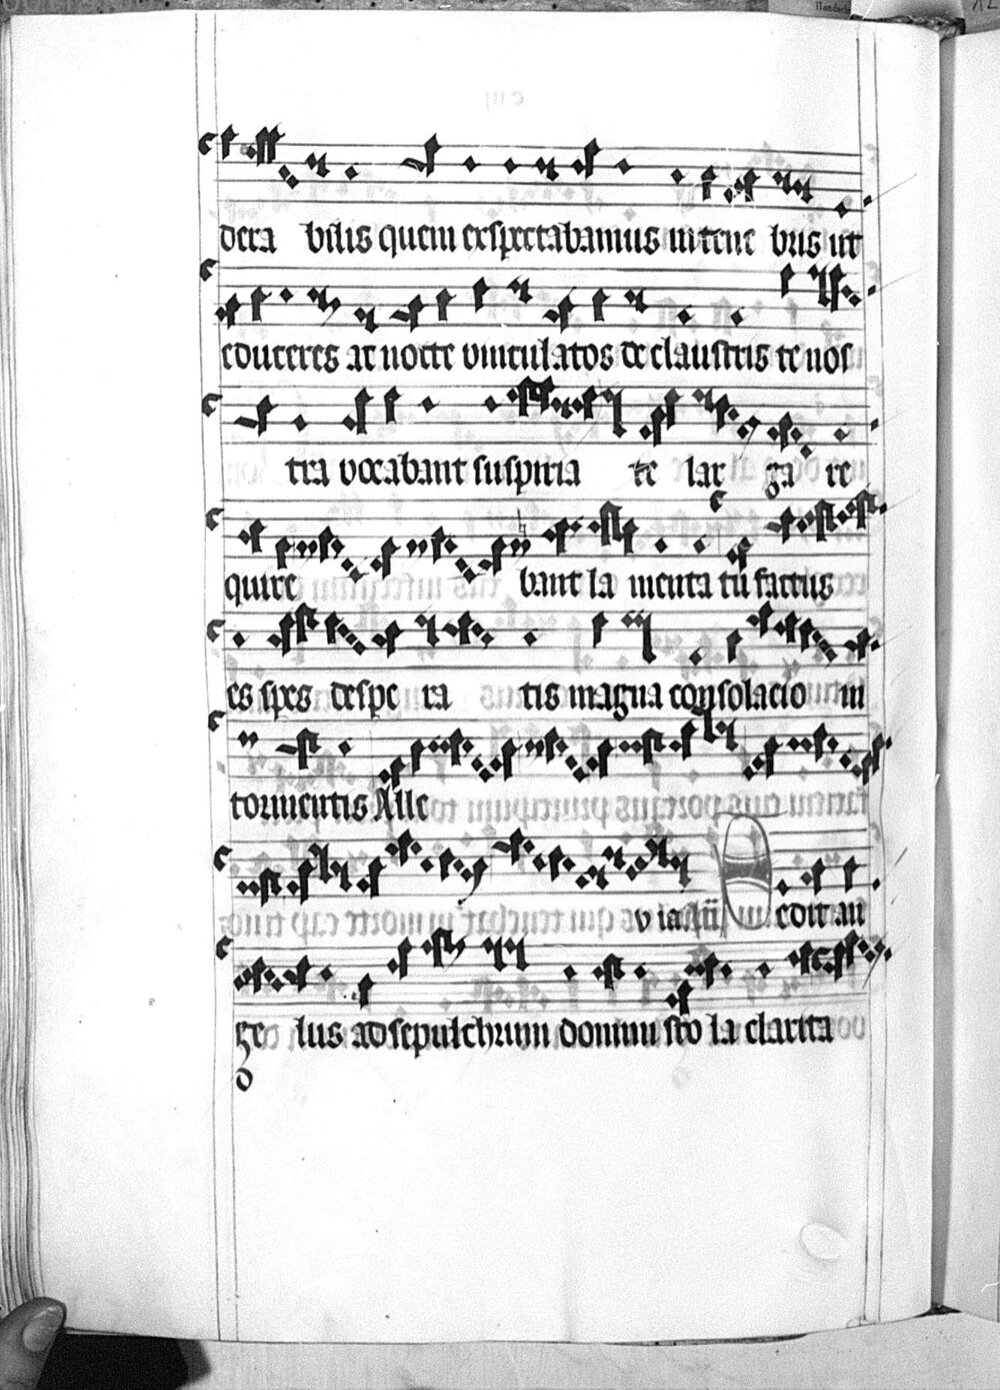 dera bilis quem exspectabamus in tene bris ut
educeres ac nocte vinculatos de claustris te nos
tra vocabant suspiria te lar ga re
quire bant la menta tu factus
es spes despe ra tis magna consolacio in
tormentis Alle
v ia Sedit an
ge lus ad sepulchrum domini sto la clarita